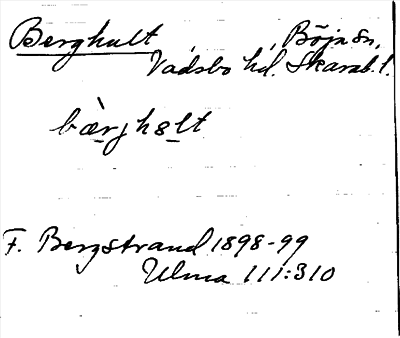 Berghult Böja sn,
Vadsbo hd. Skarab. l.
bæ̀rjhɷlt
F. Bergstrand 1898-99
Ulma 111:310